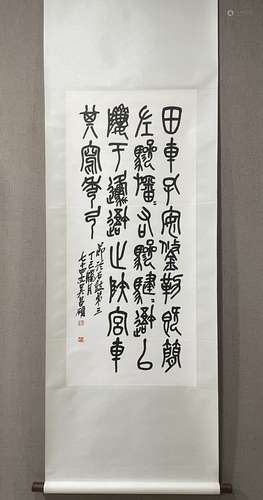 田車孔安鋚勒既簡
左驂旛=右驂騝=䢒以
隮于邍䢒止陕宮車
其寫秀弓
節臨石鼓第三
丁巳臘月
七十四叟吳昌碩